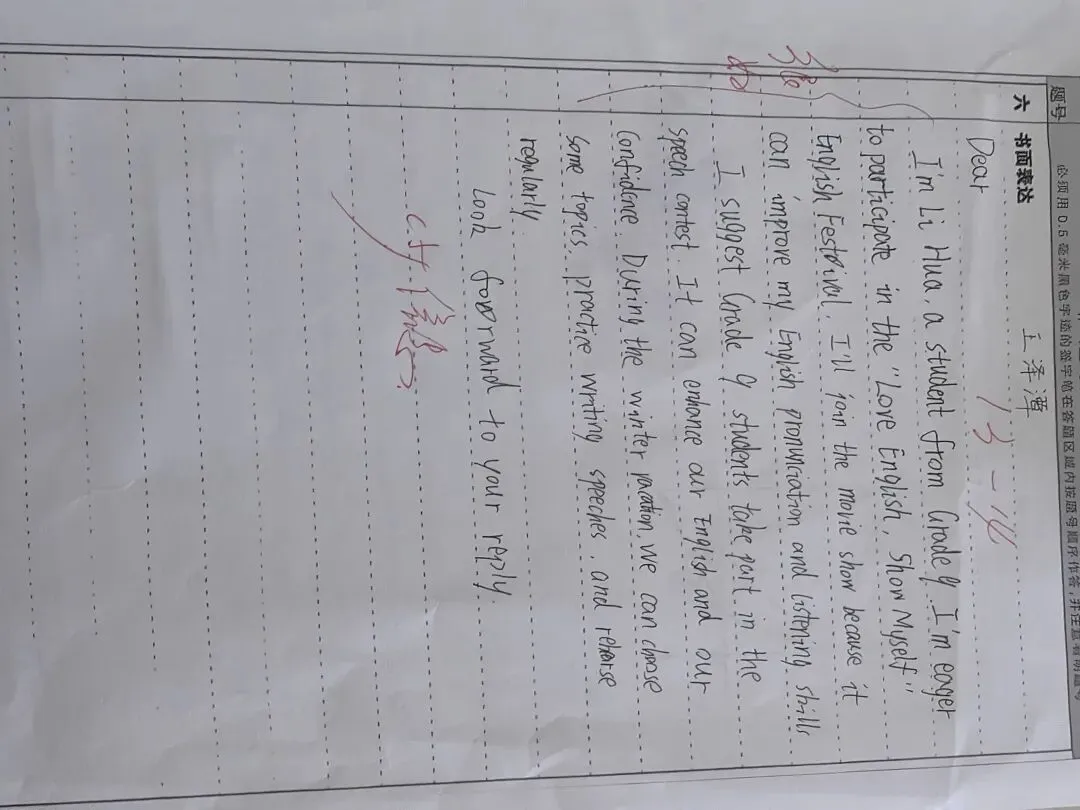 题号
必须用0.5毫米黑色字迹的签字笔在答题区域内按题号顺序作答,非
六 书面表达
王泽潭
13-14
Dear
I'm Li Hua, a student from Grade 9. I'm eager
to participate in the "Love English, Show Myself"
English Festival. I'll join the movie show because it
can improve my English pronunciation and listening skills
I suggest Grade 9 students take part in the
speech contest. It can enhance our English and our
confidence. During the winter vacation, we can choose
some topics, practice writing speeches, and rehearse
regularly.
Look forward to your reply.